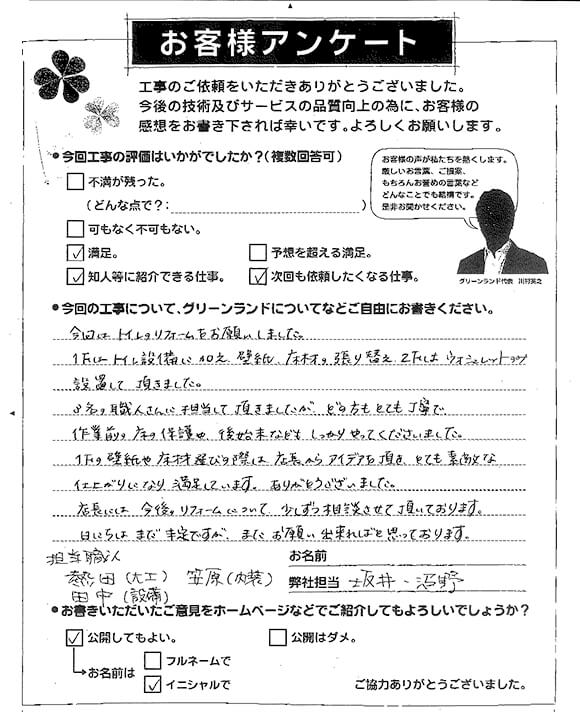 お客様アンケート
工事のご依頼をいただきありがとうございました。
今後の技術及びサービスの品質向上の為に、お客様の
感想をお書き下されば幸いです。よろしくお願いします。
●今回工事の評価はいかがでしたか？(複数回答可)
不満が残った。
（どんな点で？：　）
可もなく不可もない。
満足。
予想を超える満足。
知人等に紹介できる仕事。
次回も依頼したくなる仕事。
お客様の声が私たちを熱くします。
厳しいお言葉、ご提案、
もちろんお誉めの言葉など
どんなことでも結構です。
是非お聞かせください。
グリーンランド代表
●今回の工事について、グリーンランドについてなどご自由にお書きください。
今回はトイレのリフォームをお願いしました。
1Fはトイレ設備に加え、壁紙、床材の張り替え、2Fはウォシュレットのみ
設置して頂きました。
3名の職人さんに担当して頂きましたが、どの方もとても丁寧で
作業前の床の保護や、後始末などもしっかりやってくださいました。
1Fの壁紙や床材選びの際は、店長からアイデアを頂き、とても素敵な
仕上がりになり満足しています。ありがとうございました。
店長には、今後のリフォームについて、少しずつ相談させて頂いております。
日にちはまだ未定ですが、またお願い出来ればと思っております。
担当職人
熱田(大工)　笠原(内装)
田中(設備)
お名前
弊社担当　坂井・沼野
●お書きいただいたご意見をホームページなどでご紹介してもよろしいでしょうか？
公開してもよい。
公開はダメ。
お名前は
フルネームで
イニシャルで
ご協力ありがとうございました。